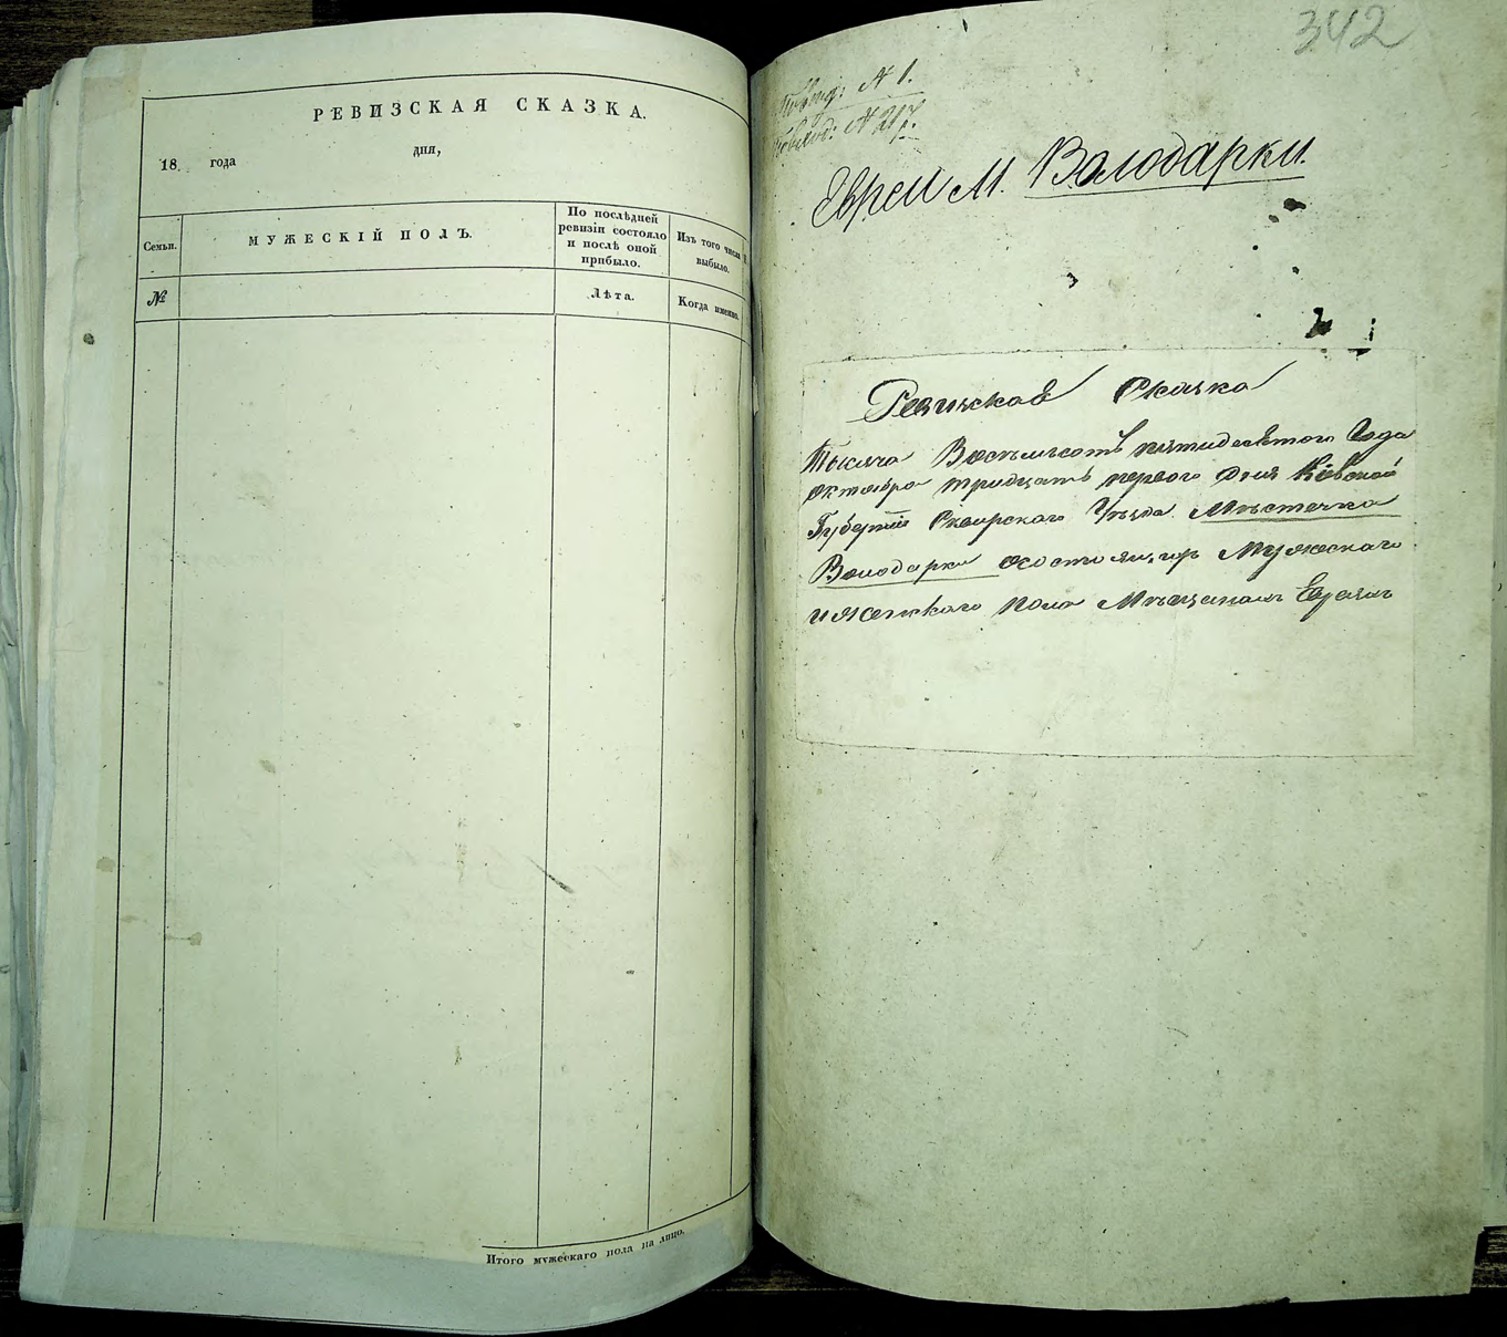 РЕВИЗСКАЯ СКАЗКА.
18 года дня,
Семьи.
МУЖЕСКІЙ ПОЛЪ.
По послѣдней
ревизіи состояло
и послѣ оной
прибыло.
Изъ того числа
выбыло.
№
Лѣта.
Когда именно.
Итого мужескаго пола на лицо.
342
№ 1.
№ 217.
Евреи М. Володарки.
Ревизская Сказка
Тысяча Восемьсотъ пятидесятого Года
октября тридцать первого дня Кіевской
Губерніи Сквирского Уѣзда Мѣстечка
Володарки осостоящихъ Мужескаго
и женскаго пола Мѣщанахъ Евреяхъ